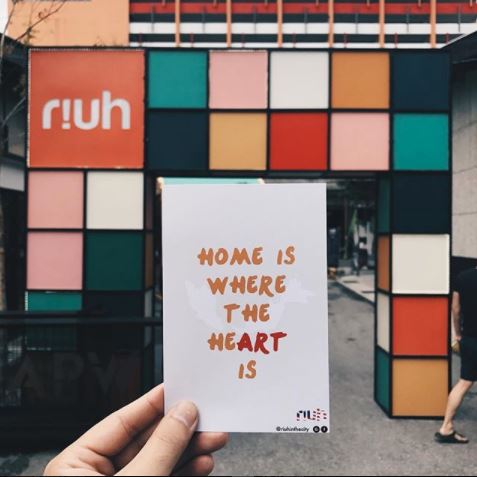 r!uh
HOME IS
WHERE
THE
HEART
IS
riuh
@riuhinthecity